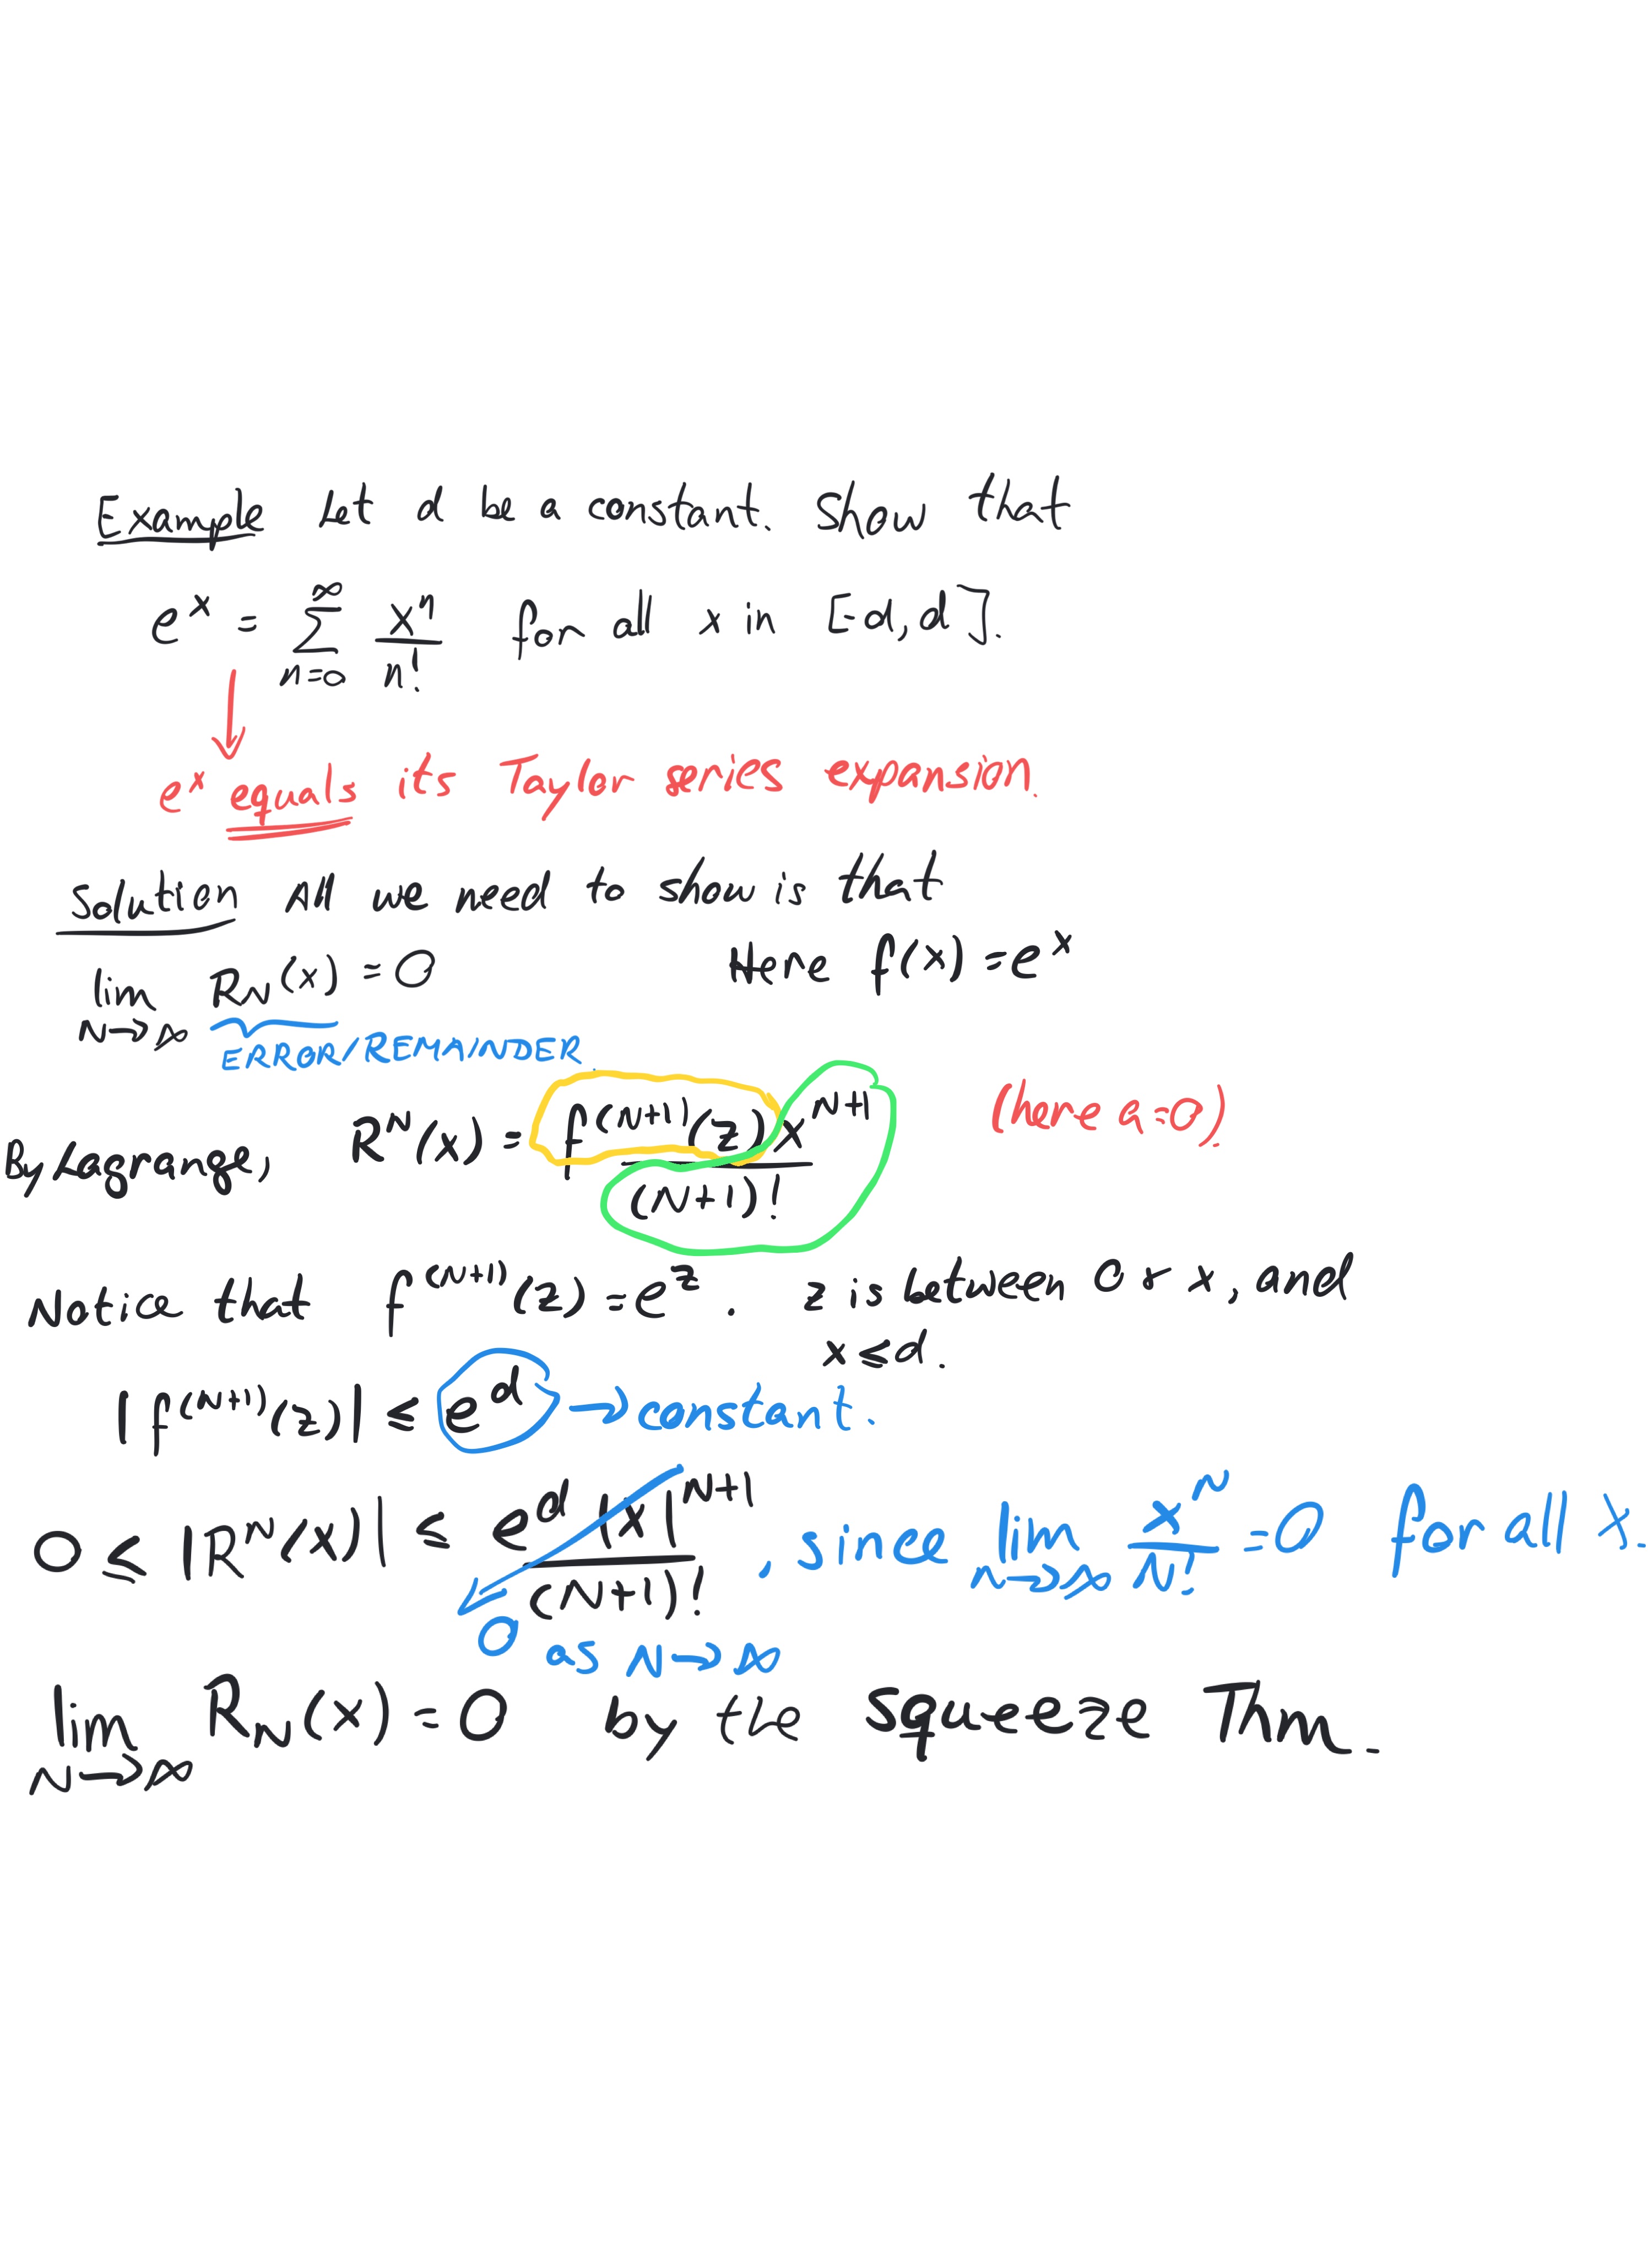 Example Let d be a constant. Show that
e^x = ∑_{n=0}^{∞} x^n / n! for all x in [-d, d].
e^x equals its Taylor series expansion.
Solution All we need to show is that
lim_{N→∞} R_N(x) = 0 Here f(x) = e^x
ERROR/REMAINDER.
By Lagrange, R^N(x) = f^{(N+1)}(z) x^{N+1} / (N+1)! (here a=0).
Notice that f^{(N+1)}(z) = e^z. z is between 0 & x, and
x ≤ d.
|f^{(N+1)}(z)| ≤ e^d → constant.
0 ≤ |R^N(x)| ≤ e^d |x|^{N+1} / (N+1)!, since lim_{N→∞} x^N / N! = 0 for all x.
0 as N→∞
lim_{N→∞} R_N(x) = 0 by the Squeeze Thm.